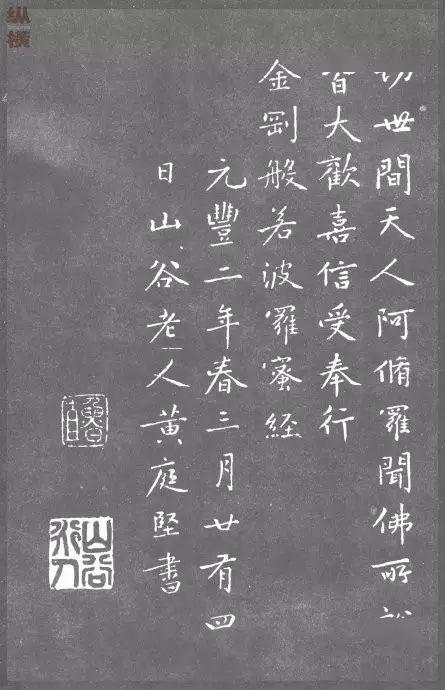 纵横
切世間天人阿脩羅聞佛所說
皆大歡喜信受奉行
金剛般若波羅蜜經
元豐二年春三月廿有四
日山谷老人黃庭堅書
山谷